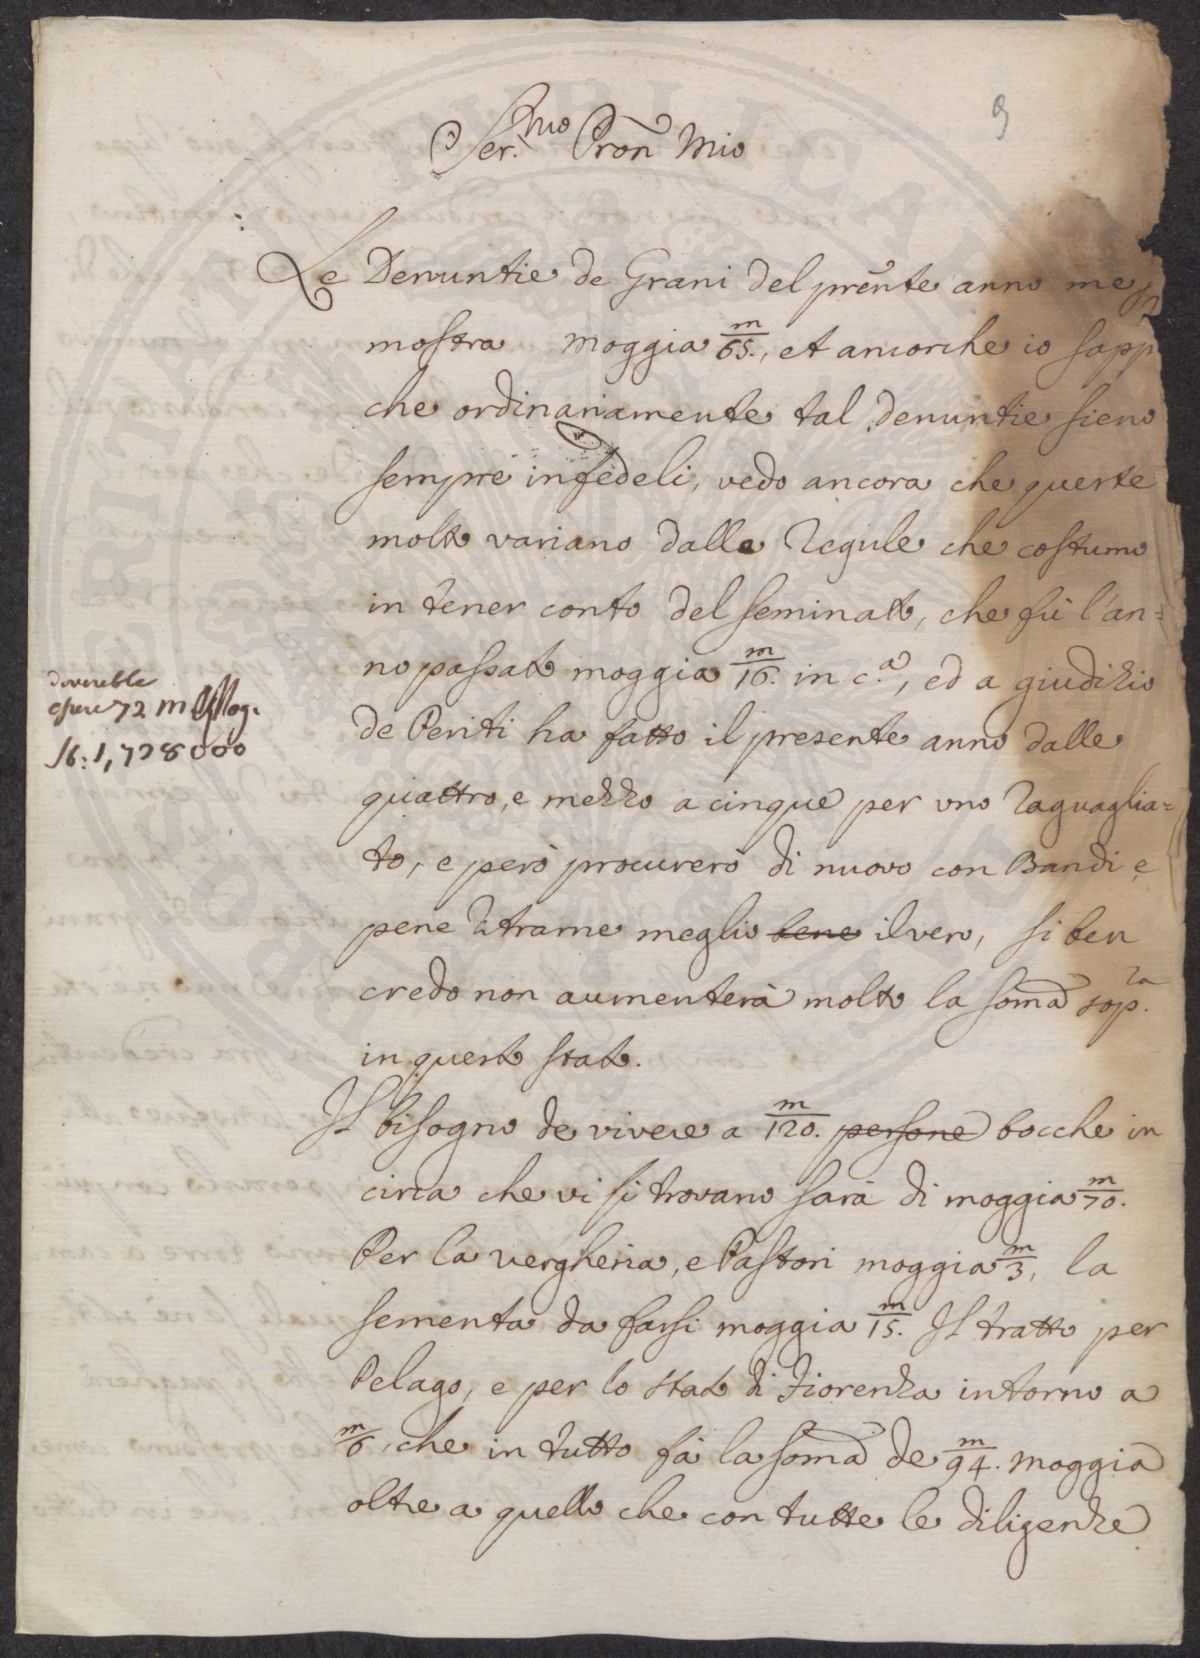 9
Ser.mo Pron Mio
Le Denuntie de Grani del pr̃nte anno me
mostra moggia m/65., et ancorche io sapp
che ordinariamente tal denuntie sieno
sempre infedeli, vedo ancora che queste
molto variano dalle Regule che costumo
in tener conto del seminato, che fù l'an=
no passato moggia m/16. in c.a, ed a giudizio
de Periti ha fatto il presente anno dalle
quattro, e mezzo a cinque per uno Raguaglia=
to, e però procurerò di nuovo con Bandi, e
pene ritrarne meglio bene il vero, si ben
credo non aumenterà molto la som̃a sop.ra
in questo stato.
Il bisogno de vivere a m/120. persone bocche in
circa che vi si trovano sarà di moggia m/70.
Per la vergheria, e Pastori moggia m/3, la
sementa da farsi moggia m/15. Il tratto per
Pelago, e per lo stato di Fiorenza intorno a
m/6, che in tutto fà la som̃a de m/94. moggia
oltre a quello che con tutte le diligenze
doverebbe
essere 72 m Mog.
16: 1,728000